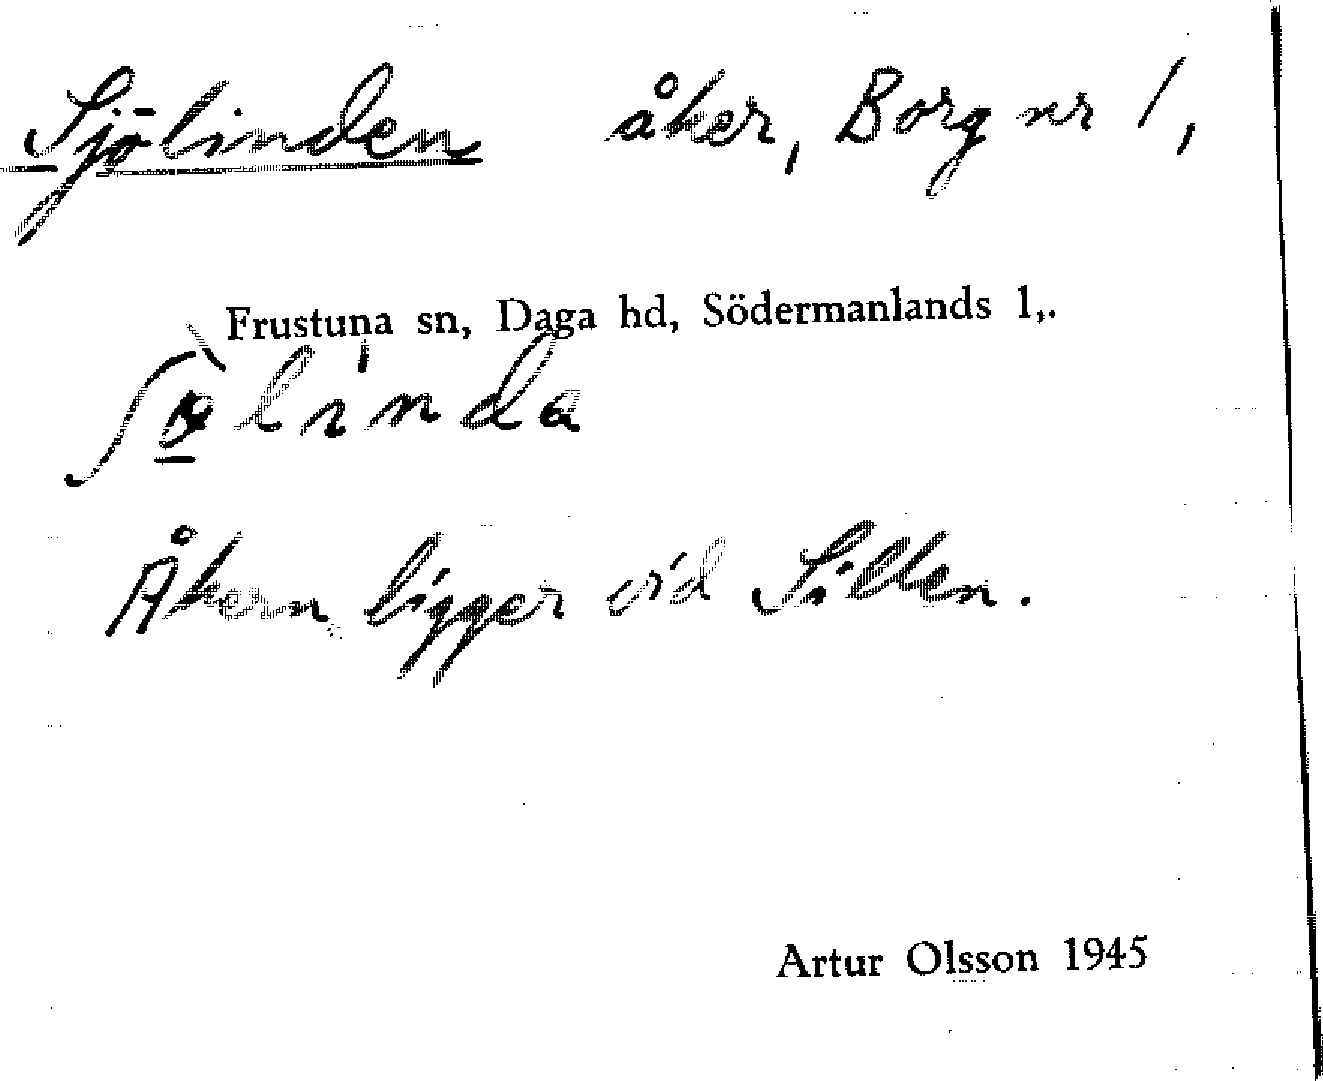 Sjölinden åker, Borg nr 1,
Frustuna sn, Daga hd, Södermanlands l,.
Åkern ligger vid Sillen.
Artur Olsson 1945